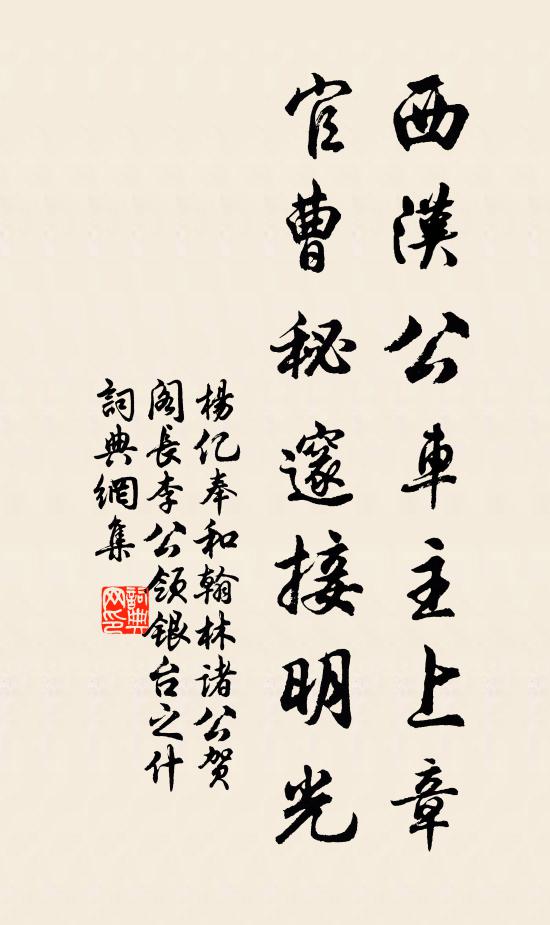 西漢公車主上章
官曹秘邃接明光
楊亿奉和翰林諸公賀
阁長李公領銀台之什
詞典網集
詞典网印